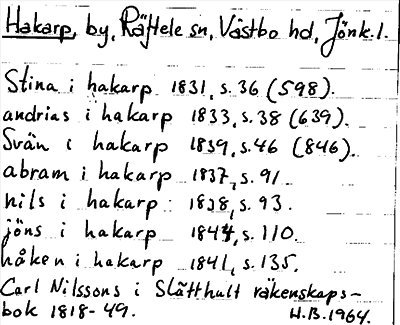 Hakarp, by, Räftele sn, Västbo hd, Jönk. l.
Stina i hakarp 1831, s. 36 (598).
andrias i hakarp 1833, s. 38 (639).
Svän i hakarp 1839, s. 46 (846).
abram i hakarp 1837, s. 91
nils i hakarp 1838, s. 93.
jöns i hakarp 1844, s. 110.
håken i hakarp 1841, s. 135.
Carl Nilssons i Slätthult räkenskaps-
bok 1818-49. H.B. 1964.